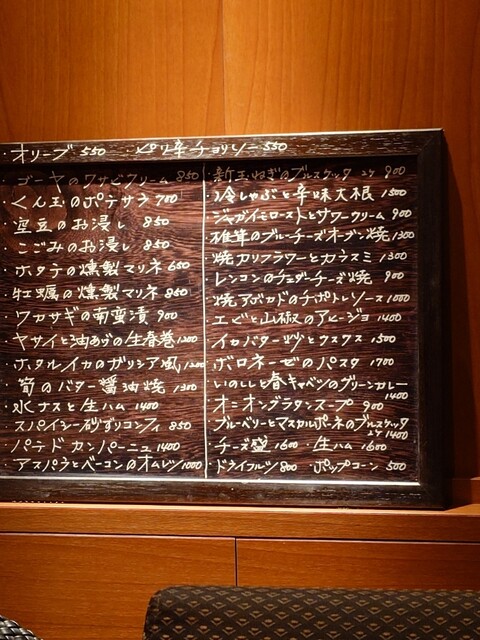 ・オリーブ 550 ・ピリ辛チョリソー 550
・ゴーヤのワサビクリーム 850
・くん玉のポテサラ 700
・空豆のお浸し 850
・こごみのお浸し 850
・ホタテの燻製マリネ 650
・牡蠣の燻製マリネ 850
・ワカサギの南蛮漬 900
・ヤサイと油あげの生春巻 1200
・ホタルイカのガリシア風 1200
・筍のバター醤油焼 1300
・水ナスと生ハム 1400
・スパイシー砂ずりコンフィ 850
・パテドカンパーニュ 1400
・アスパラとベーコンのオムレツ 1000
・新玉ねぎのブルスケッタ 2ケ 900
・冷しゃぶと辛味大根 1500
・ジャガイモローストとサワークリーム 900
・椎茸のブルーチーズオーブン焼 1300
・焼カリフラワーとカラスミ 1300
・レンコンのチェダーチーズ焼 900
・焼アボカドのチポトレソース 1000
・エビと山椒のアヒージョ 1400
・イカバター炒とクスクス 1500
・ボロネーゼのパスタ 1700
・いのししと春キャベツのグリーンカレー 1400
・オニオングラタンスープ 900
・ブルーベリーとマスカルポーネのブルスケッタ 2ケ 1400
・チーズ盛 1600 ・生ハム 1600
・ドライフルーツ 800 ・ポップコーン 500